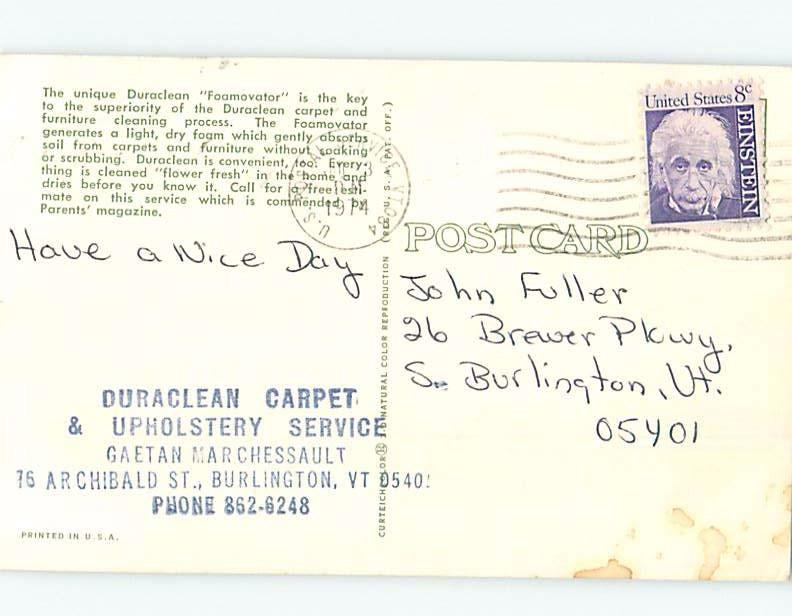 The unique Duraclean "Foamovator" is the key
to the superiority of the Duraclean carpet and
furniture cleaning process. The Foamovator
generates a light, dry foam which gently absorbs
soil from carpets and furniture without soaking
or scrubbing. Duraclean is convenient, too. Every-
thing is cleaned "flower fresh" in the home and
dries before you know it. Call for a free esti-
mate on this service which is commended by
Parents' magazine.
Have a Nice Day
DURACLEAN CARPET
& UPHOLSTERY SERVICE
GAETAN MARCHESSAULT
76 ARCHIBALD ST., BURLINGTON, VT 05401
PHONE 862-6248
PRINTED IN U.S.A.
CURTEICHCOLOR® 3-D NATURAL COLOR REPRODUCTION (REG. U. S. A. PAT. OFF.)
1974
United States 8c
EINSTEIN
POST CARD
John Fuller
26 Brewer Pkwy,
S. Burlington, Vt.
05401